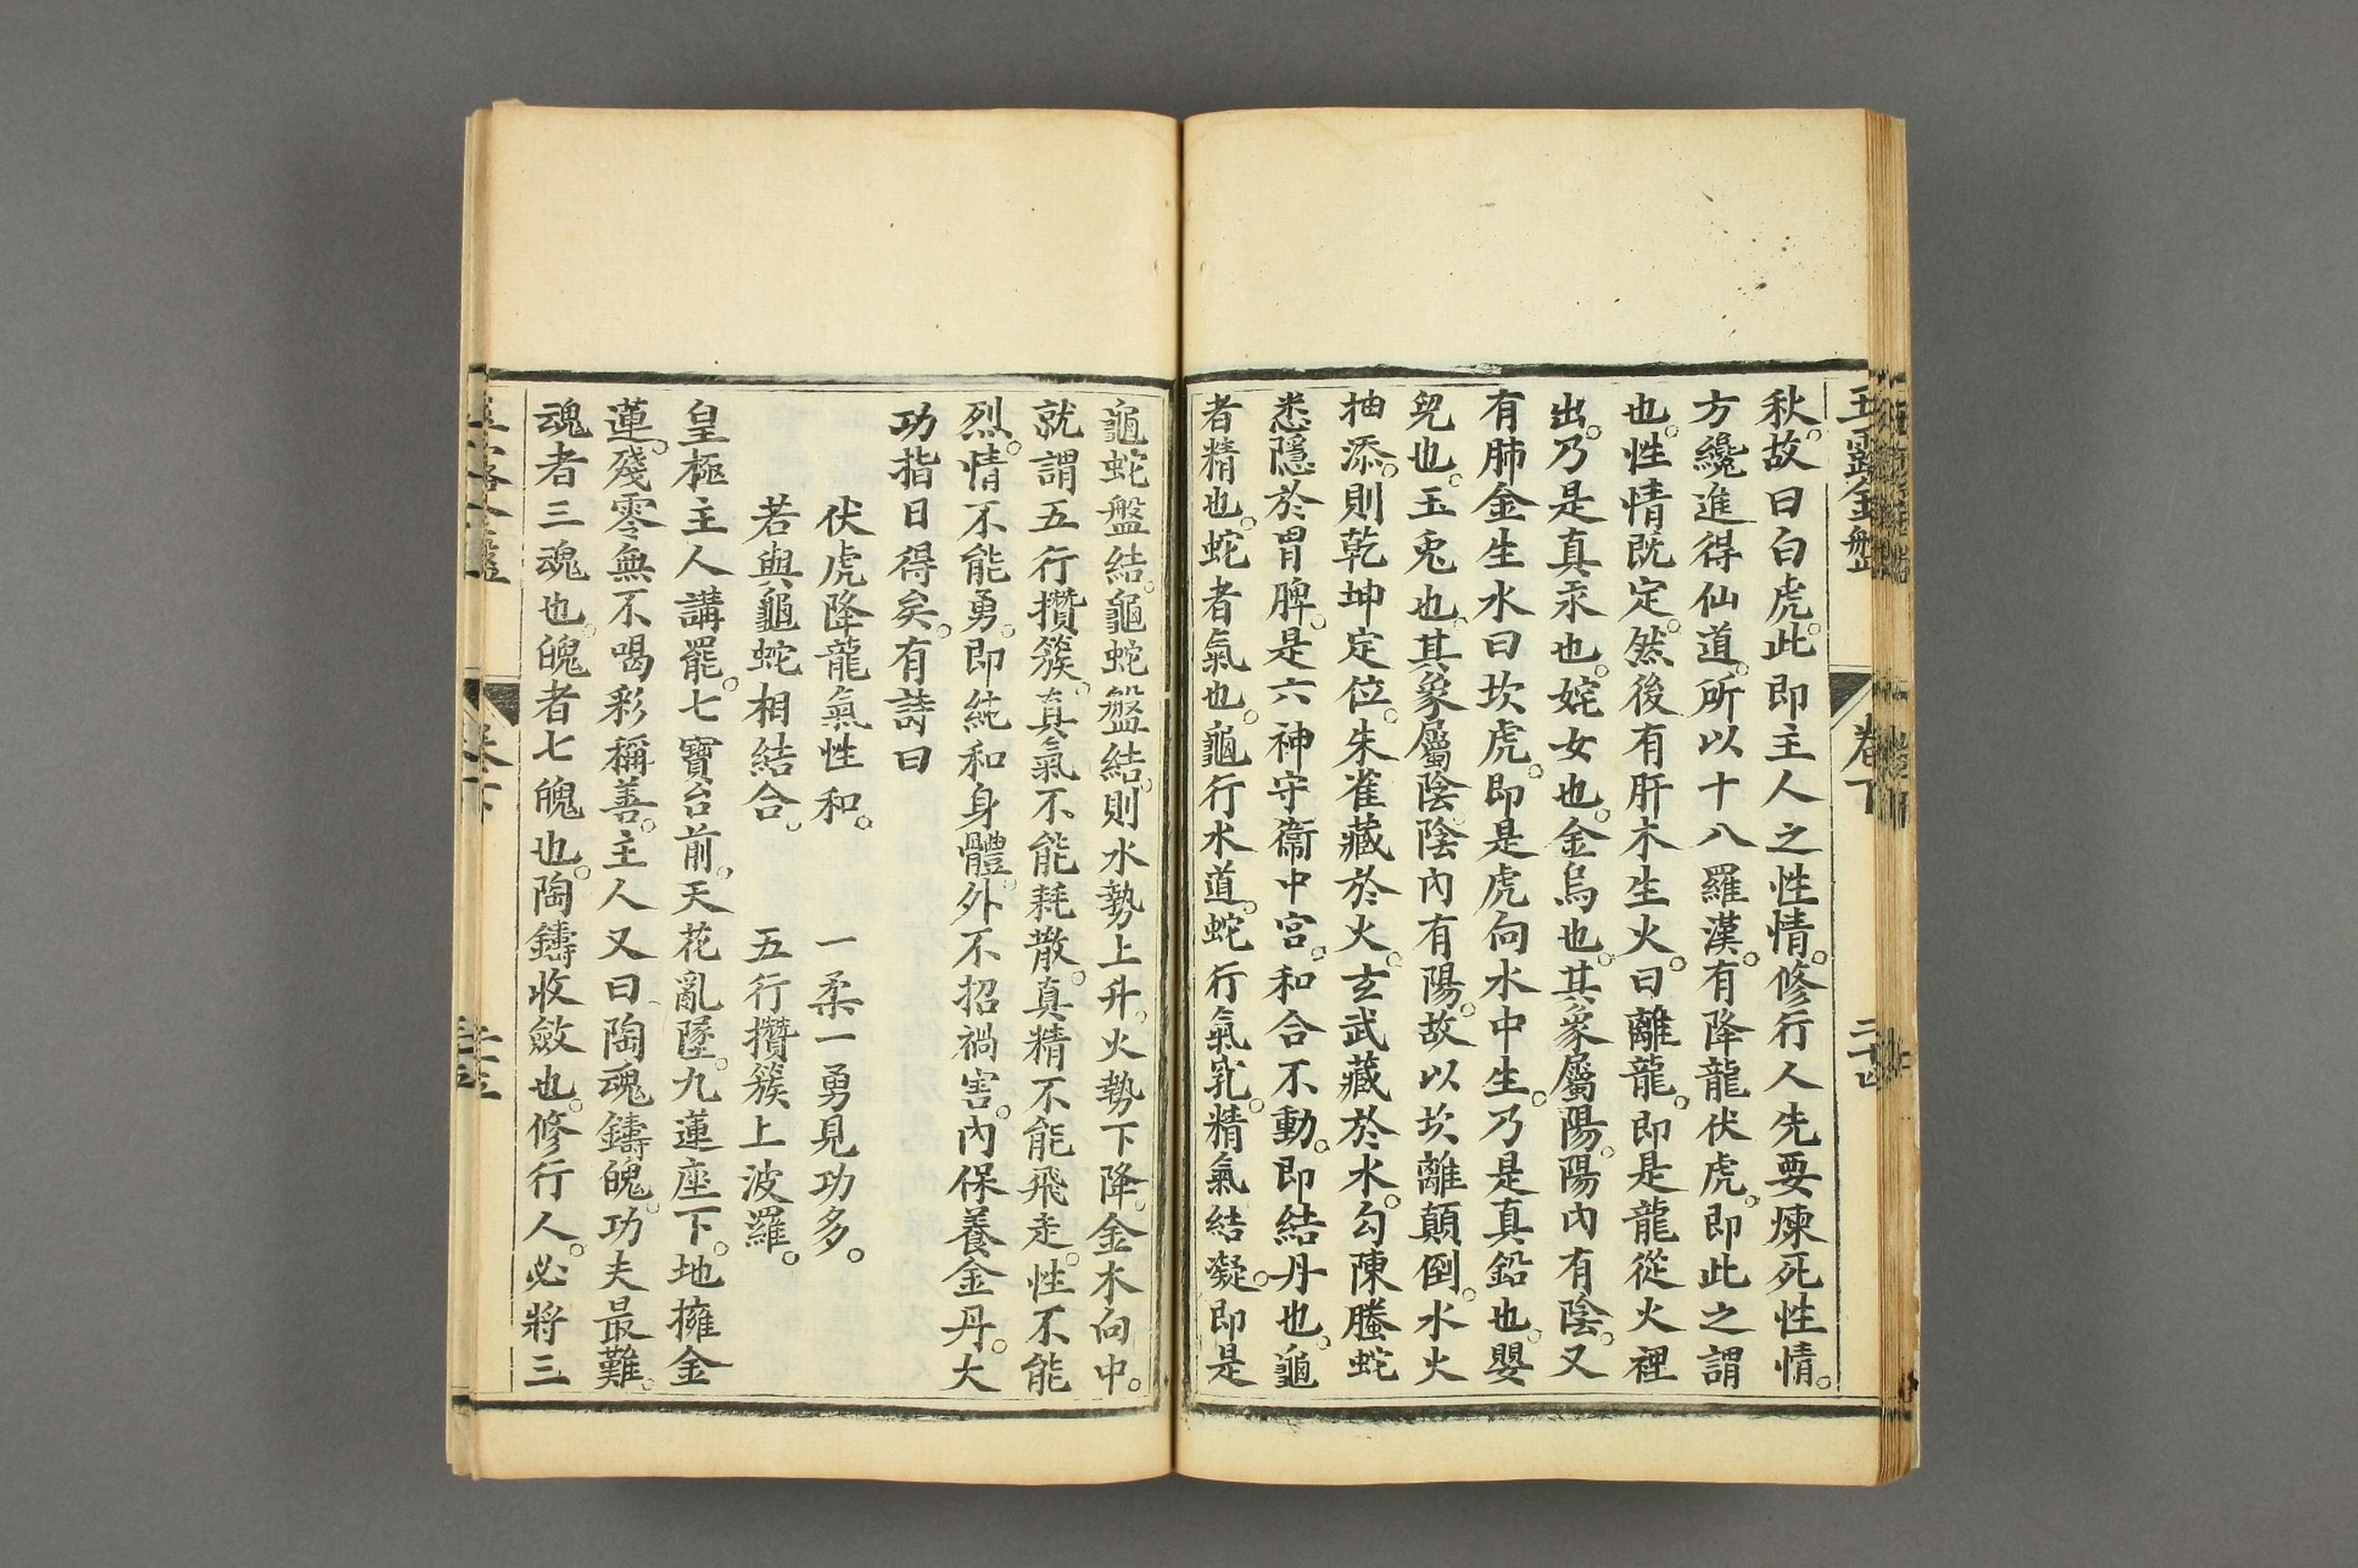 玉露金盤
卷下
二十四
秋。故曰白虎。此即主人之性情。修行人先要煉死性情。
方纔進得仙道。所以十八羅漢。有降龍伏虎。即此之謂
也。性情既定。然後有肝木生火。曰離龍。即是龍從火裡
出。乃是真汞也。姹女也。金烏也。其象屬陽。陽內有陰。又
有肺金生水曰坎虎。即是虎向水中生。乃是真鉛也。嬰
兒也。玉兎也。其象屬陰。陰內有陽。故以坎離顛倒。水火
抽添。則乾坤定位。朱雀藏於火。玄武藏於水。勾陳螣蛇
悉隱於胃脾。是六神守衞中宮。和合不動。即結丹也。龜
者精也。蛇者氣也。龜行水道。蛇行氣乳。精氣結凝。即是
龜蛇盤結。龜蛇盤結。則水勢上升。火勢下降。金木向中。
就謂五行攢簇。真氣不能耗散。真精不能飛走。性不能
烈。情不能勇。即純和身體。外不招禍害。內保養金丹。大
功指日得矣。有詩曰
伏虎降龍氣性和。 一柔一勇見功多。
若與龜蛇相結合。 五行攢簇上波羅。
皇極主人講罷。七寶台前。天花亂墜。九蓮座下。地擁金
蓮。殘零無不喝彩稱善。主人又曰陶魂鑄魄。功夫最難。
魂者三魂也。魄者七魄也。陶鑄收斂也。修行人。必將三
卷下